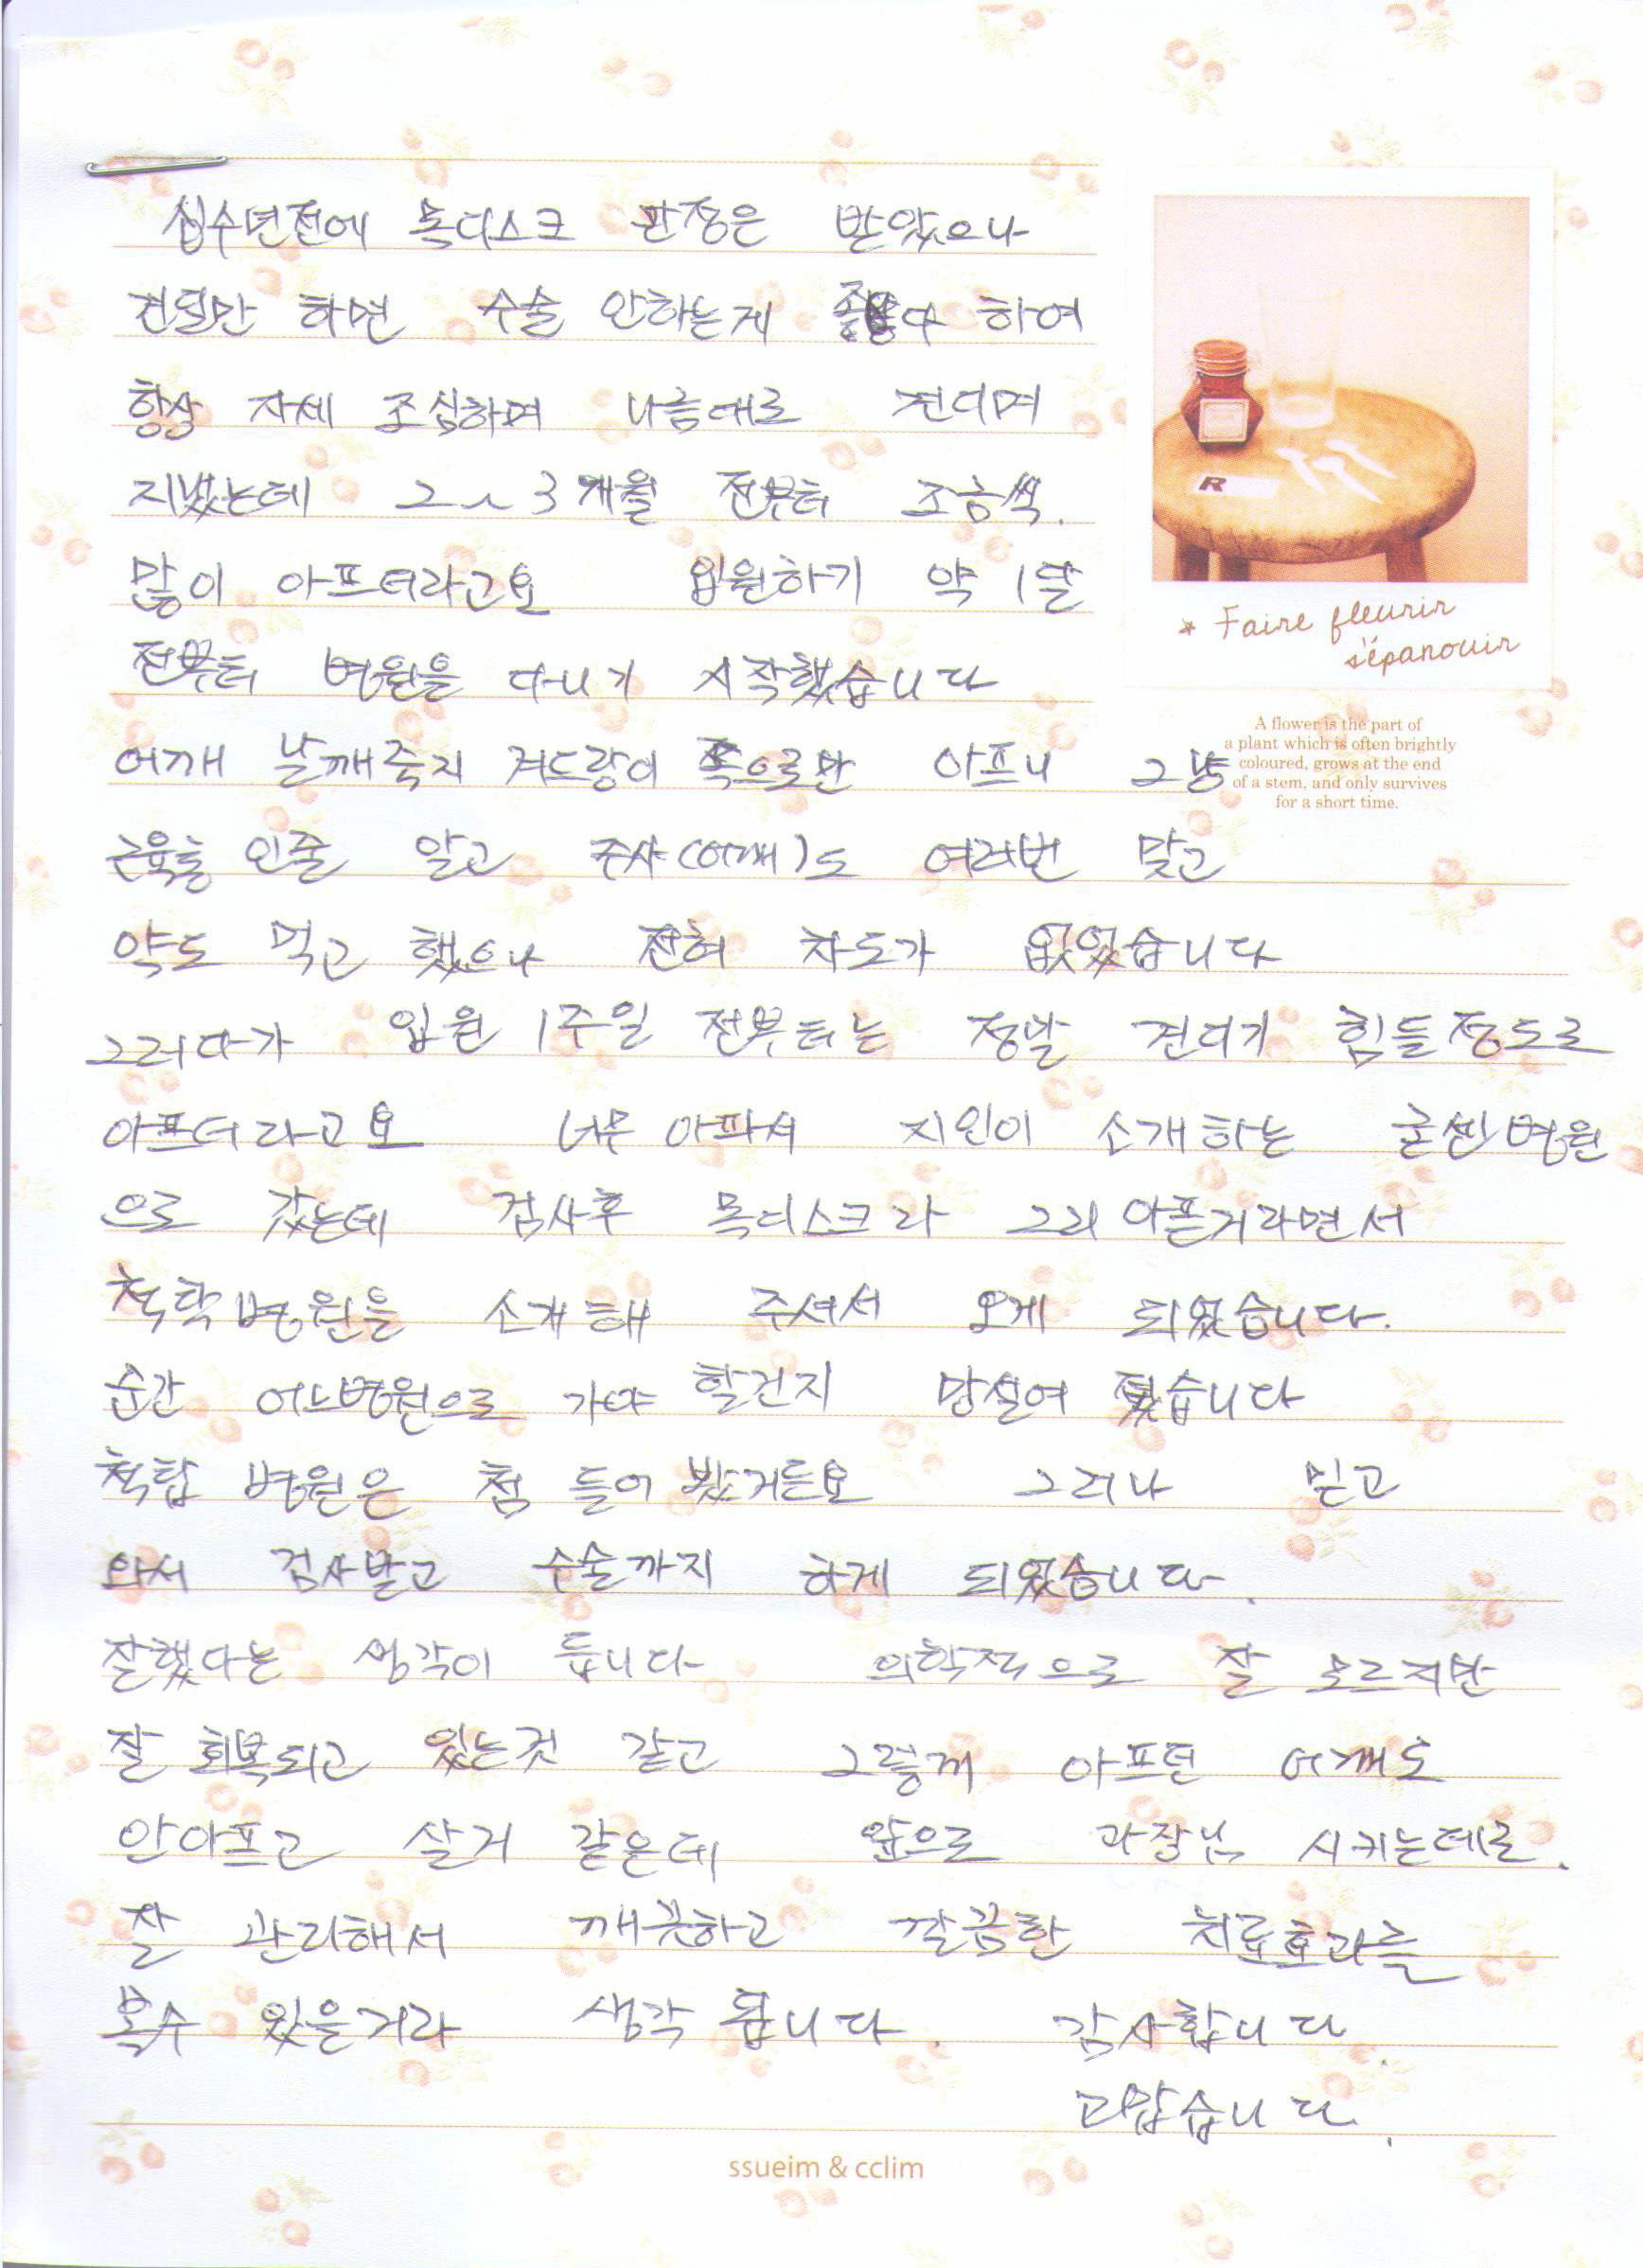 십수년전에 목디스크 판정은 받았으나
견딜만 하면 수술 안하는게 좋다 하여
항상 자세 조심하며 나름대로 견디며
지냈는데 2~3개월 전부터 조금씩.
많이 아프더라고요 입원하기 약 1달
전부터 병원을 다니기 시작했습니다
어깨 날깨죽지 겨드랑이 쪽으로만 아프니 그냥
근육통 인줄 알고 주사(어깨)도 여러번 맞고
약도 먹고 했으나 전혀 차도가 없었습니다
그러다가 입원 1주일 전부터는 정말 견디기 힘들정도로
아프더라고요 너무 아파서 지인이 소개하는 굳센병원
으로 갔는데 검사후 목디스크라 그리 아픈거라면서
척탑병원을 소개해 주셔서 오게 되었습니다.
순간 어느병원으로 가야 할건지 망설여 졌습니다
척탑 병원은 첨 들어 봤거든요 그러나 믿고
와서 검사받고 수술까지 하게 되었습니다.
잘했다는 생각이 듭니다 의학적으로 잘 모르지만
잘 회복되고 있는것 같고 그렇게 아프던 어깨도
안아프고 살거 같은데 앞으로 과장님 시키는데로.
잘 관리해서 깨끗하고 깔끔한 치료효과를
볼수 있을거라 생각 됩니다. 감사합니다.
고맙습니다.
* Faire fleurir
s'épanouir
A flower is the part of
a plant which is often brightly
coloured, grows at the end
of a stem, and only survives
for a short time.
R
ssueim & cclim